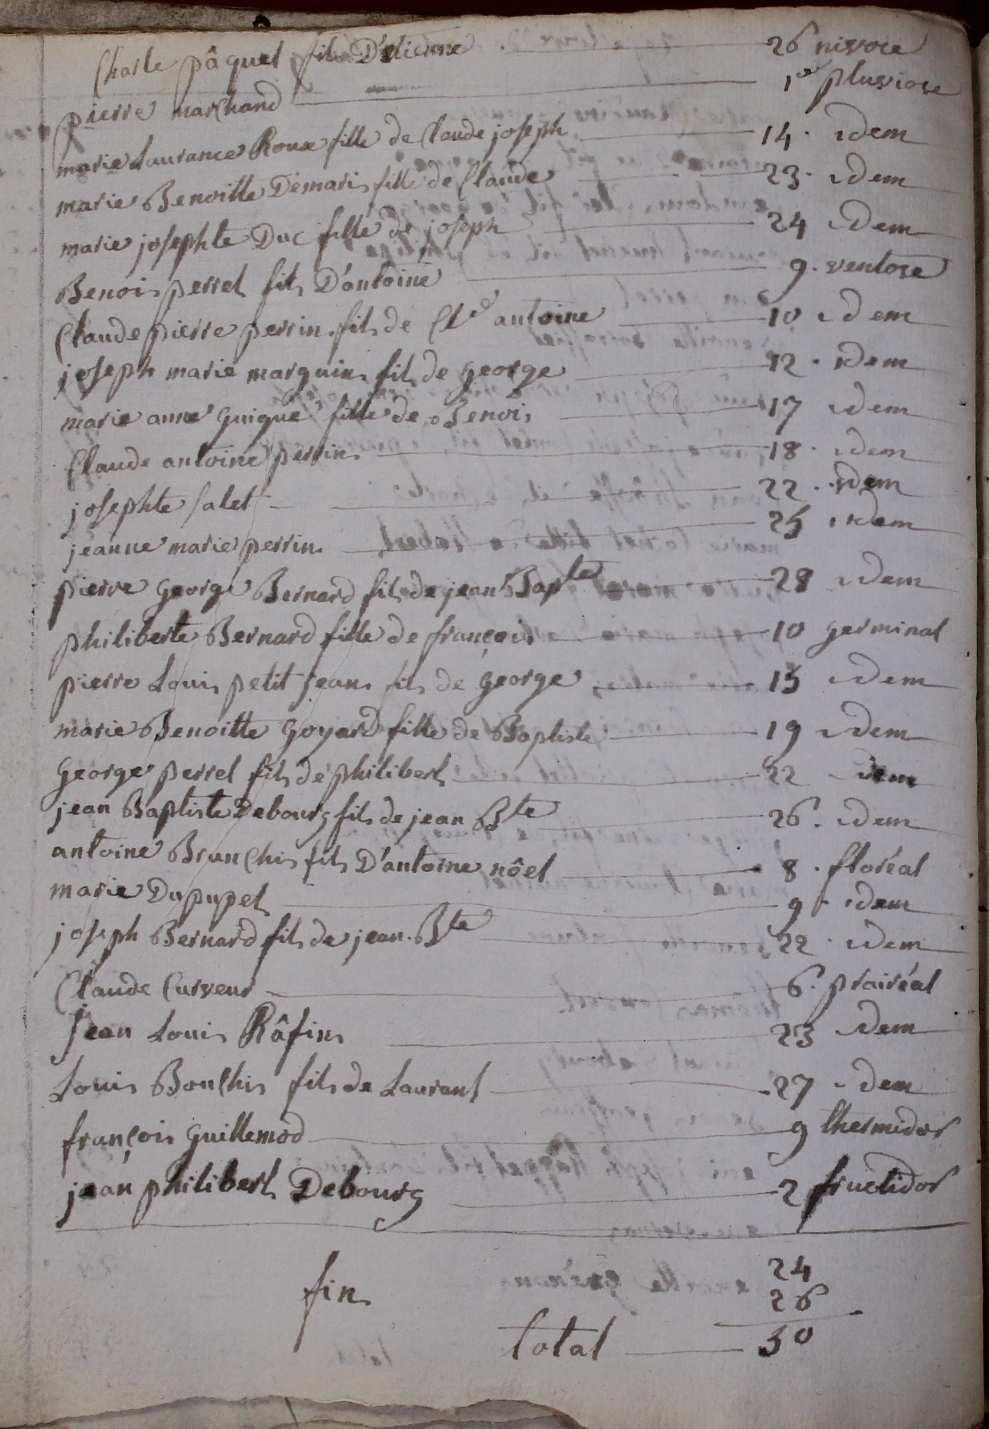 Charle pâquet fils D'etienne 26 nivose
pierre marchand 1er pluviose
marie Laurance Roux fille de Claude joseph 14. idem
marie Benoitte Demaris fille de Claude 23. idem
marie josephte Duc fille de joseph 24 idem
Benois perret fils D'antoine 9. ventose
Claude pierre perrin fils de Cl.de antoine 10 idem
joseph marie marguin fils de george 12. idem
marie anne guigue fille de Benois 17 idem
Claude antoine perrin 18. idem
josephte salet 22. idem
jeanne marie perrin 25 idem
pierre george Bernard fils de jean Bapte 28 idem
philiberte Bernard fille de françois 10 germinal
pierre Louis petit jean fils de george 15 idem
marie Benoitte goyard fille de Baptiste 19 idem
george perret fils de philibert 22 idem
jean Baptiste Debourg fils de jean Bte 26. idem
antoine Brunchis fils D'antoine nôel 8. floréal
marie Dupupet 9. idem
joseph Bernard fils de jean Bte 22. idem
Claude Curveur 6. prairéal
jean Louis Râfin 23 idem
Louis Bouchis fils de Laurant 27 idem
françois guillemod 9 thermidor
jean philibert Debourg 2 fructidor
24
fin 26
total 50